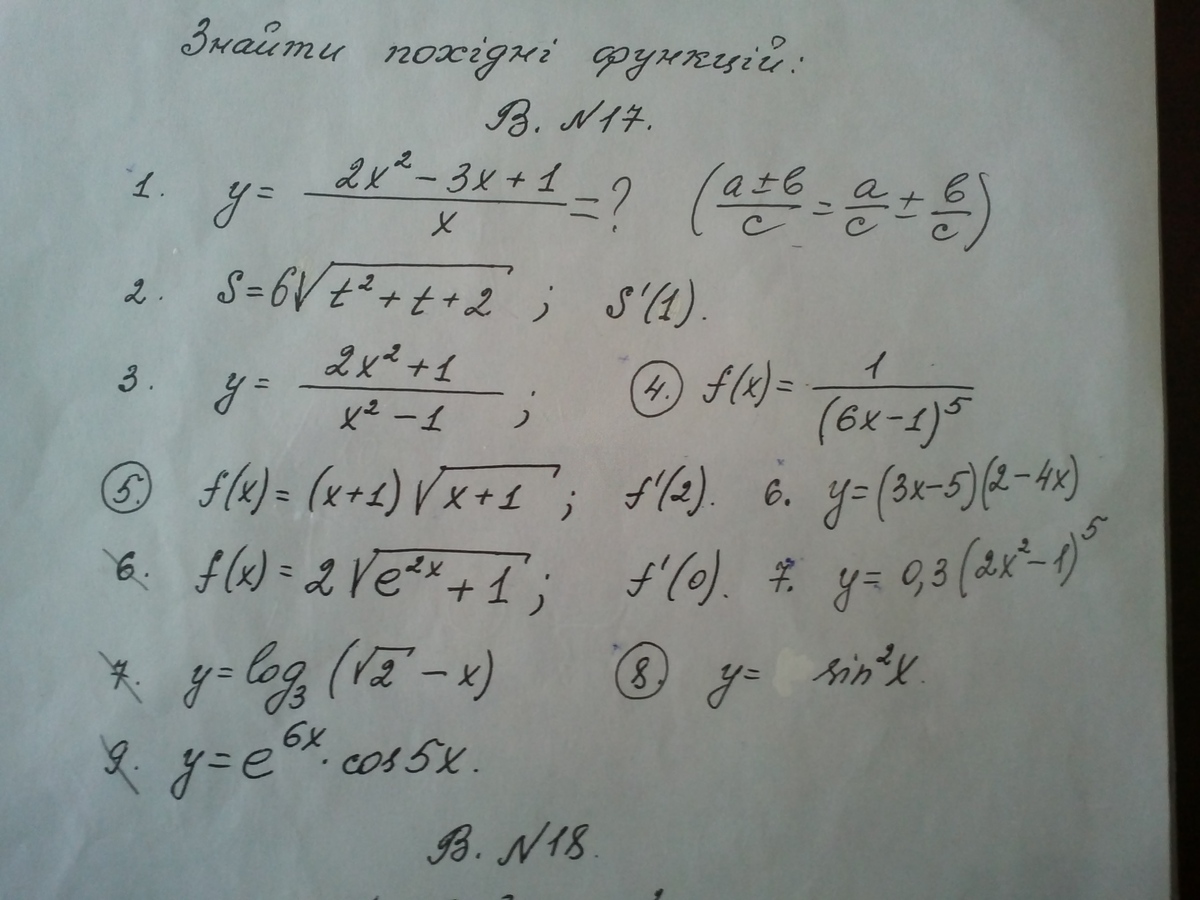 Знайти похідні функцій:
В. №17.
1. y = (2x² - 3x + 1)/x = ? ((a ± в)/c = a/c ± в/c)
2. S = 6√(t² + t + 2) ; S'(1).
3. y = (2x² + 1)/(x² - 1) ; 4. f(x) = 1/(6x-1)⁵
5. f(x) = (x+1)√(x+1) ; f'(2). 6. y = (3x-5)(2-4x)
6. f(x) = 2√(e²ˣ + 1) ; f'(0). 7. y = 0,3(2x² - 1)⁵
7. y = log₃(√2 - x) 8. y = sin²x.
9. y = e⁶ˣ · cos5x.
В. №18.